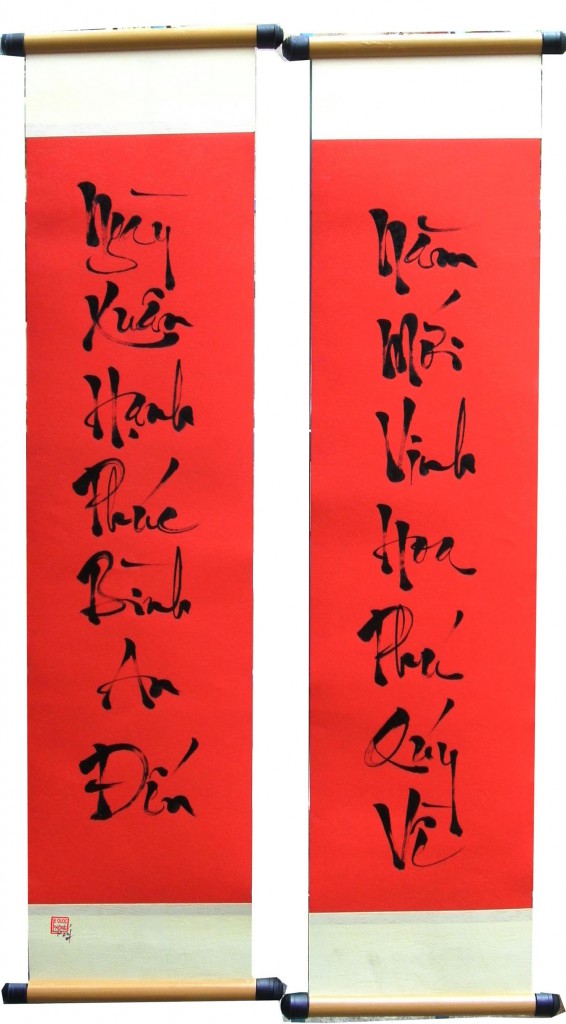 Ngày
Xuân
Hạnh
Phúc
Bình
An
Đến
Năm
Mới
Vinh
Hoa
Phú
Quý
Về